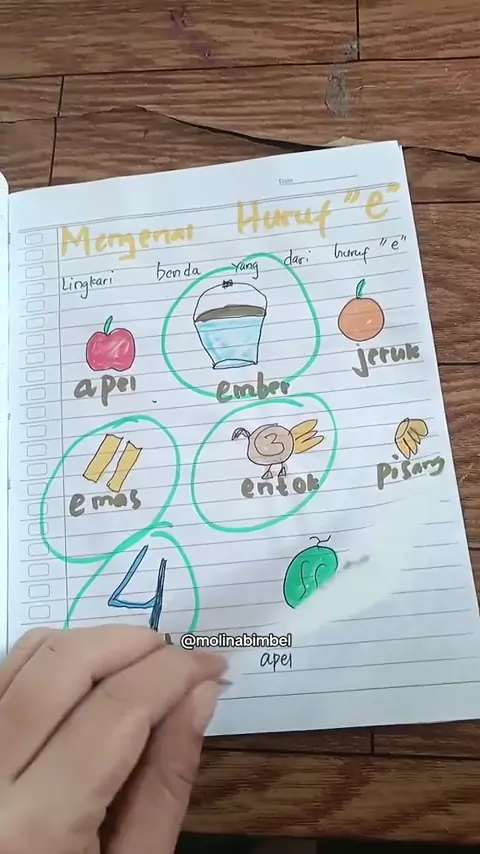 Date
Mengenal Huruf "e"
Lingkari benda yang dari huruf "e"
apel
ember
jeruk
emas
entok
pisang
@molinabimbel
apel